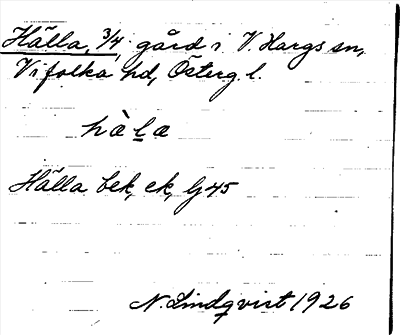 Hälla, 3/4, gård i V. Hargs sn,
Vifolka hd, Österg.l.
hàlæ
Hälla bek, ek, Gj 45
N. Lindqvist 1926